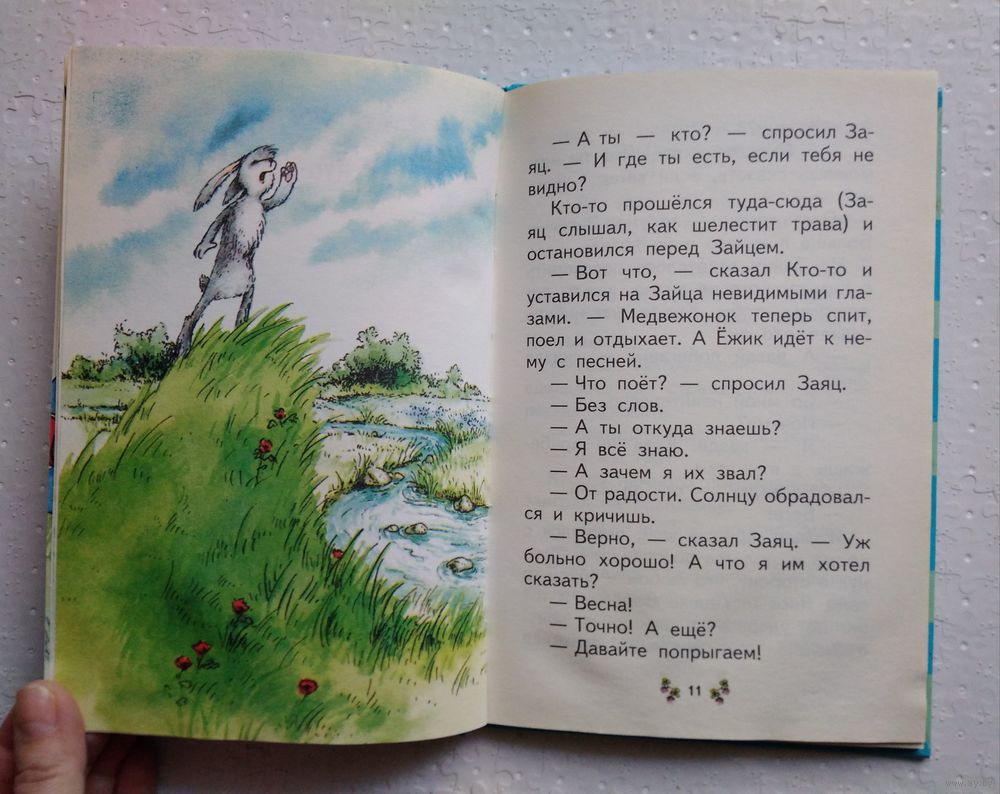 — А ты — кто? — спросил За-
яц. — И где ты есть, если тебя не
видно?
Кто-то прошёлся туда-сюда (За-
яц слышал, как шелестит трава) и
остановился перед Зайцем.
— Вот что, — сказал Кто-то и
уставился на Зайца невидимыми гла-
зами. — Медвежонок теперь спит,
поел и отдыхает. А Ёжик идёт к не-
му с песней.
— Что поёт? — спросил Заяц.
— Без слов.
— А ты откуда знаешь?
— Я всё знаю.
— А зачем я их звал?
— От радости. Солнцу обрадовал-
ся и кричишь.
— Верно, — сказал Заяц. — Уж
больно хорошо! А что я им хотел
сказать?
— Весна!
— Точно! А ещё?
— Давайте попрыгаем!
11